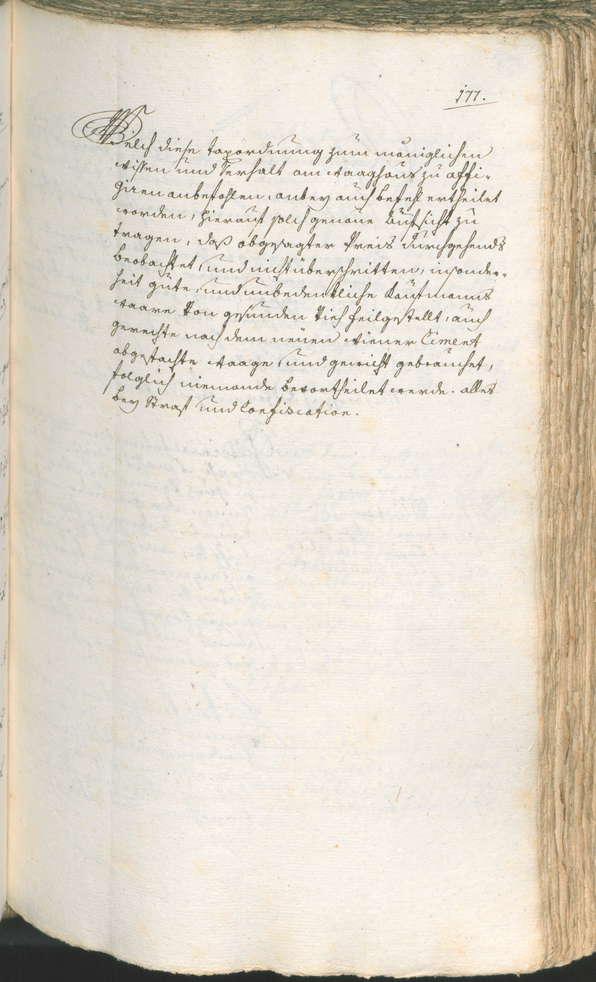 177.
Welch diese taxordnung zum mäniglichen
wissen und Verhalt am waaghaus zu affi-
giren anbefohlen, anbey auch befehl ertheilet
worden, hierauf solch genaue aufsicht zu
tragen, daß obgesagter Preis durchgehends
beobachtet, und nicht überschritten, insonder-
heit gute, und unbedenkliche Kaufmanns
waare von gesunden Vieh feilgestellt, auch
gerechte nach dem neuen wiener Ciment
abgefachte waage, und gewicht gebrauchet,
folglich niemands bevortheilet werde. alles
bey Straf und Confiscation.